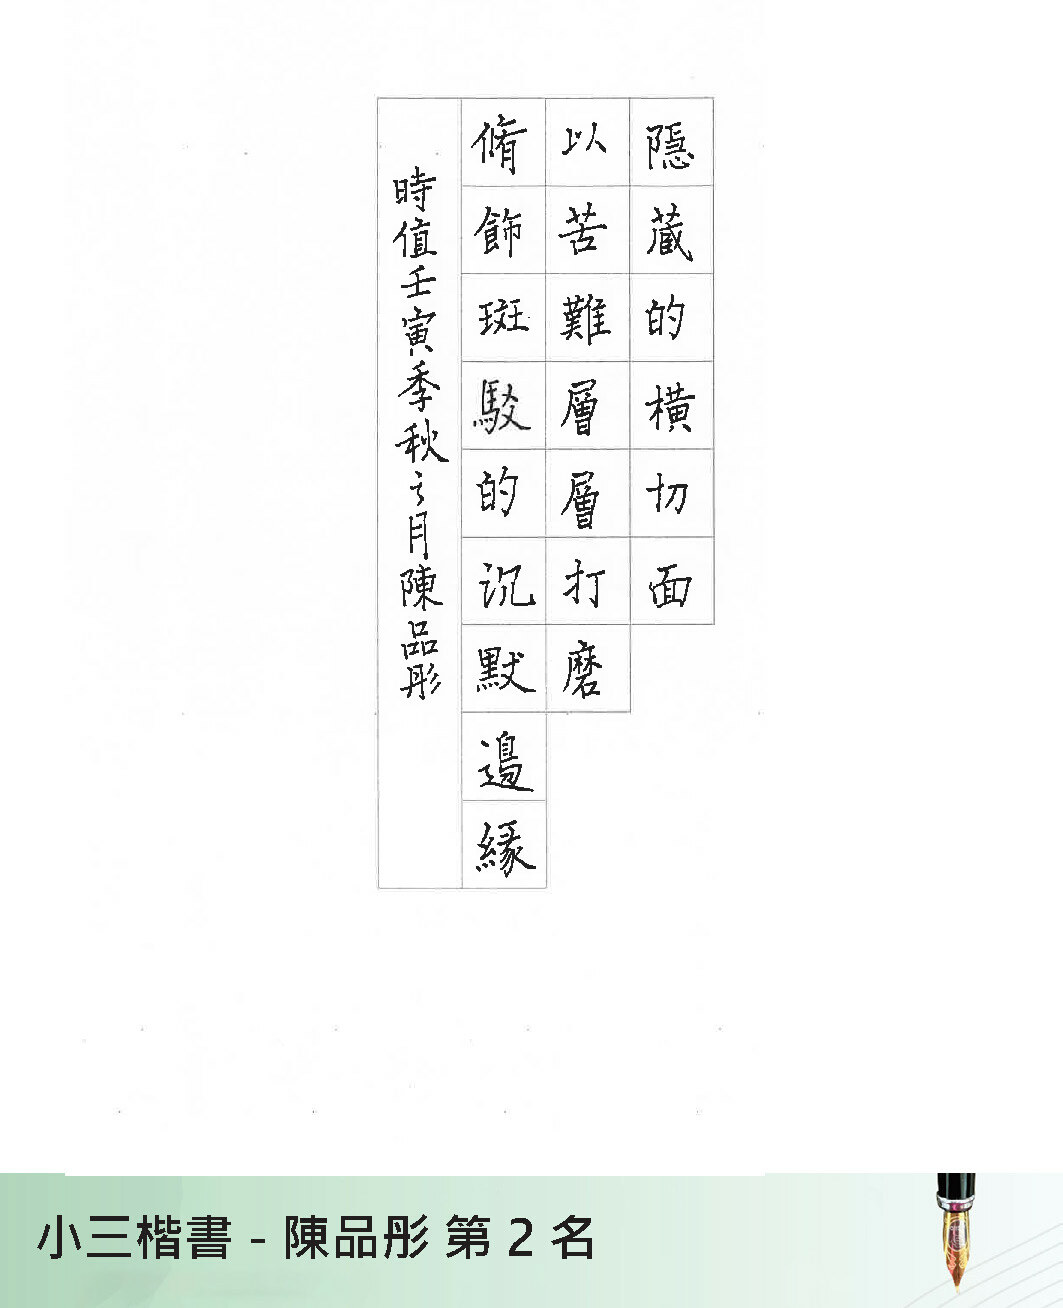 隱藏的橫切面
以苦難層層打磨
脩飾斑駁的沉默邊緣
時值壬寅季秋之月陳品彤
小三楷書 - 陳品彤 第 2 名